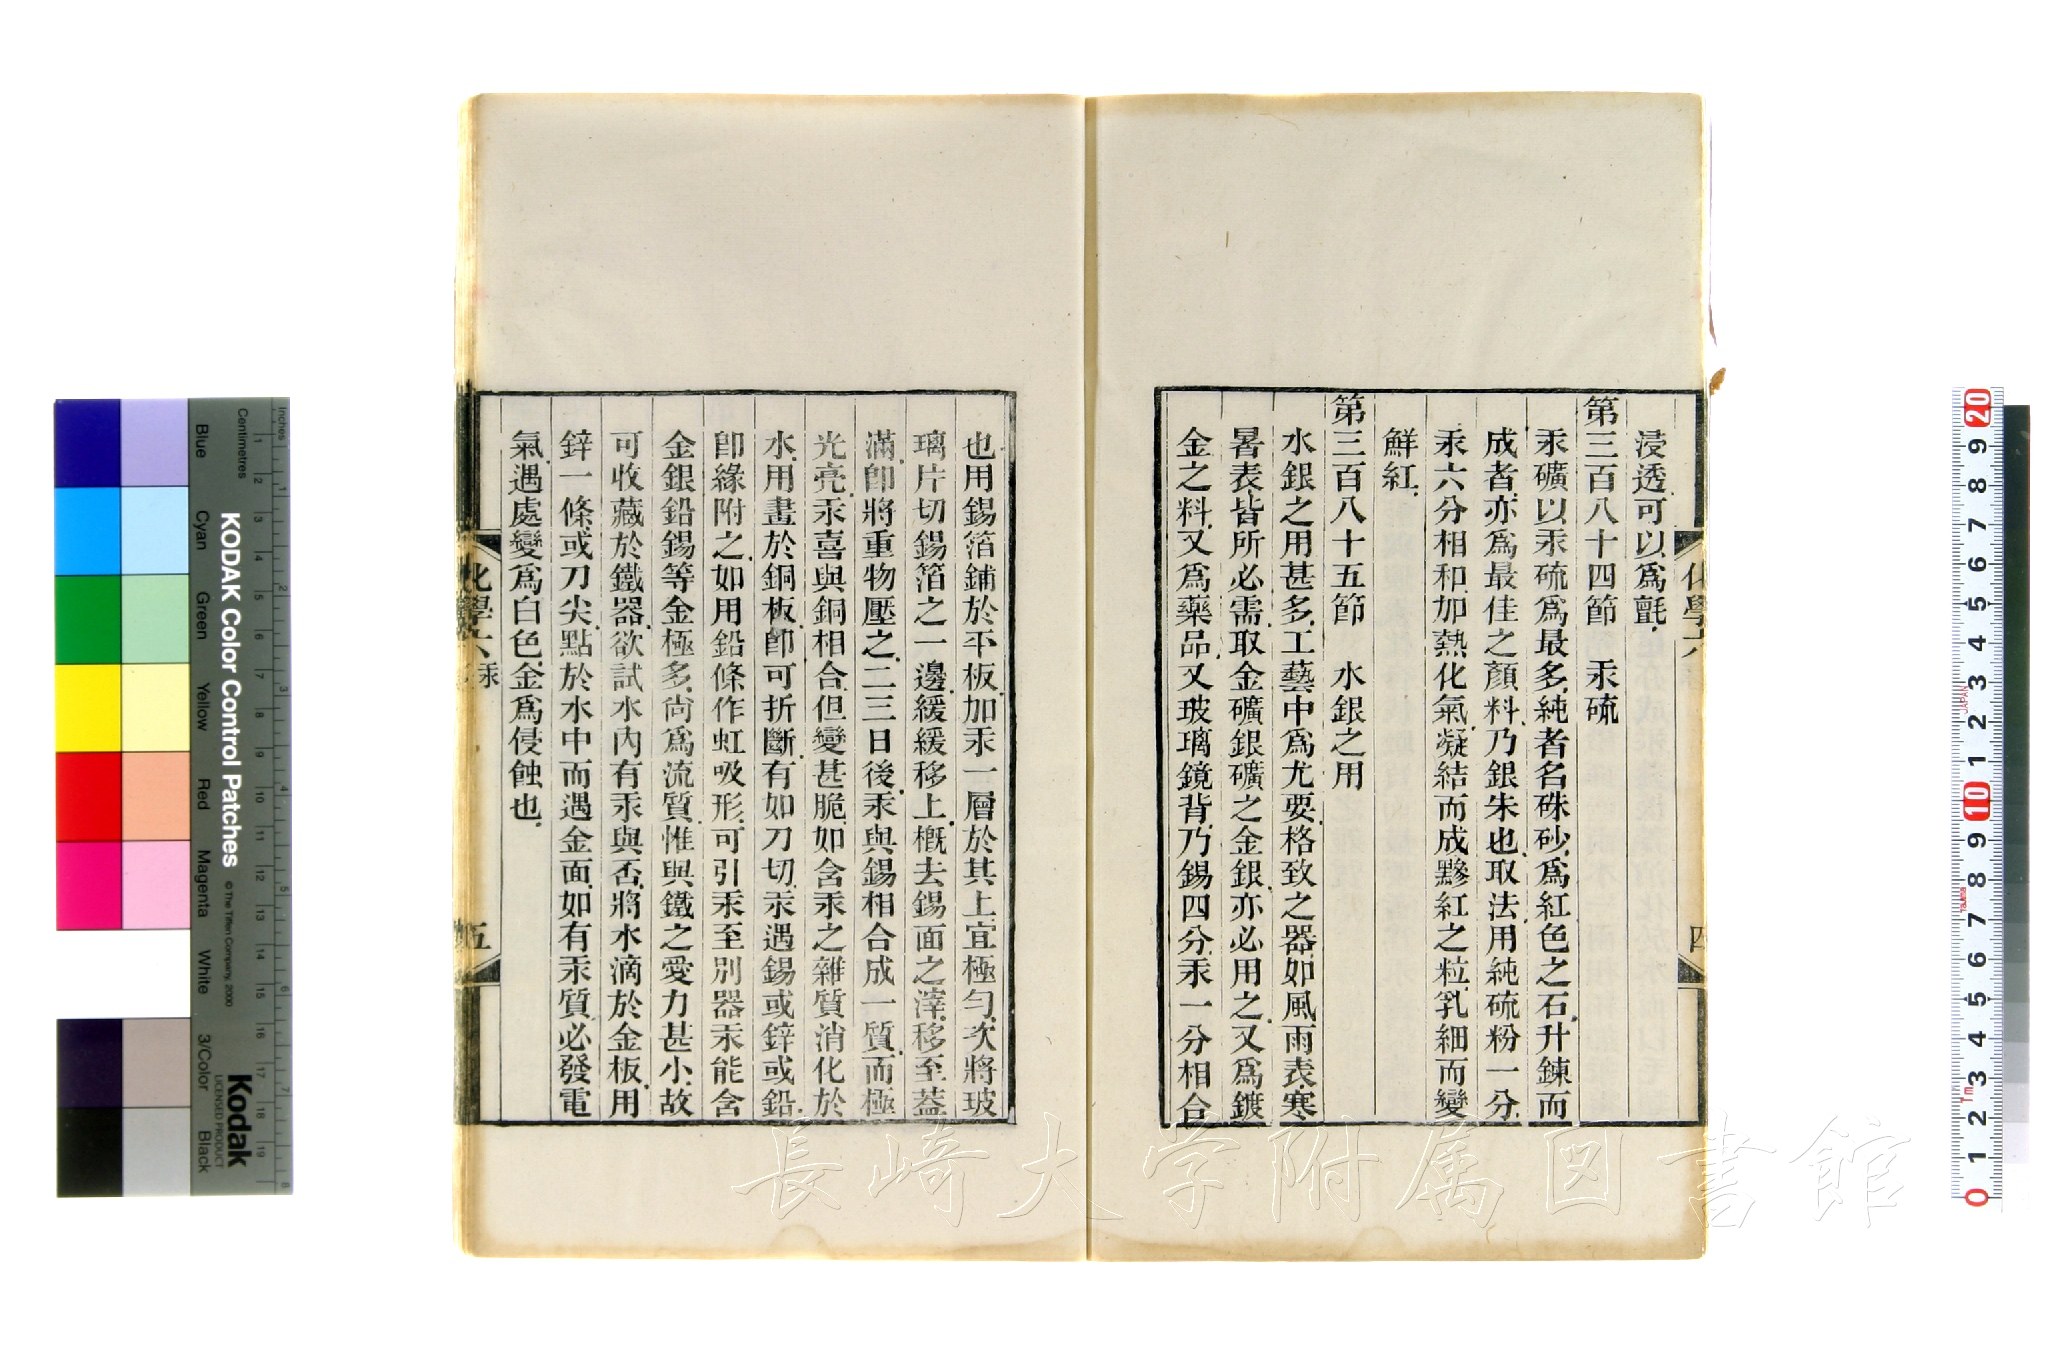 浸透可以爲氈
第三百八十四節　汞硫
汞礦以汞硫爲最多純者名硃砂爲紅色之石升鍊而
成者亦爲最佳之顏料乃銀朱也取法用純硫粉一分
汞六分相和加熱化氣凝結而成黲紅之粒乳細而變
鮮紅
第三百八十五節　水銀之用
水銀之用甚多工藝中爲尤要格致之器如風雨表寒
暑表皆所必需取金礦銀礦之金銀亦必用之又爲鍍
金之料又爲藥品又玻璃鏡背乃錫四分汞一分相合
化學六
四
也用錫箔鋪於平板加汞一層於其上宜極勻次將玻
璃片切錫箔之一邊緩緩移上概去錫面之滓移至蓋
滿卽將重物壓之二三日後汞與錫相合成一質而極
光亮汞喜與銅相合但變甚脆如含汞之雜質消化於
水用畫於銅板卽可折斷有如刀切汞遇錫或鋅或鉛
卽緣附之如用鉛條作虹吸形可引汞至別器汞能含
金銀鉛錫等金極多尙爲流質惟與鐵之愛力甚小故
可收藏於鐵器欲試水內有汞與否將水滴於金板用
鋅一條或刀尖點於水中而遇金面如有汞質必發電
氣遇處變爲白色金爲侵蝕也
化學六 汞
五
長崎大学附属図書館
KODAK Color Control Patches
© The Tiffen Company, 2000
Kodak
LICENSED PRODUCT
Inches
Centimetres
Blue
Cyan
Green
Yellow
Red
Magenta
White
3/Color
Black
1 2 3 4 5 6 7 8
1 2 3 4 5 6 7 8 9 10 11 12 13 14 15 16 17 18 19
20 9 8 7 6 5 4 3 2 1 10 9 8 7 6 5 4 3 2 1 0
JAPAN
Tajima
Tm